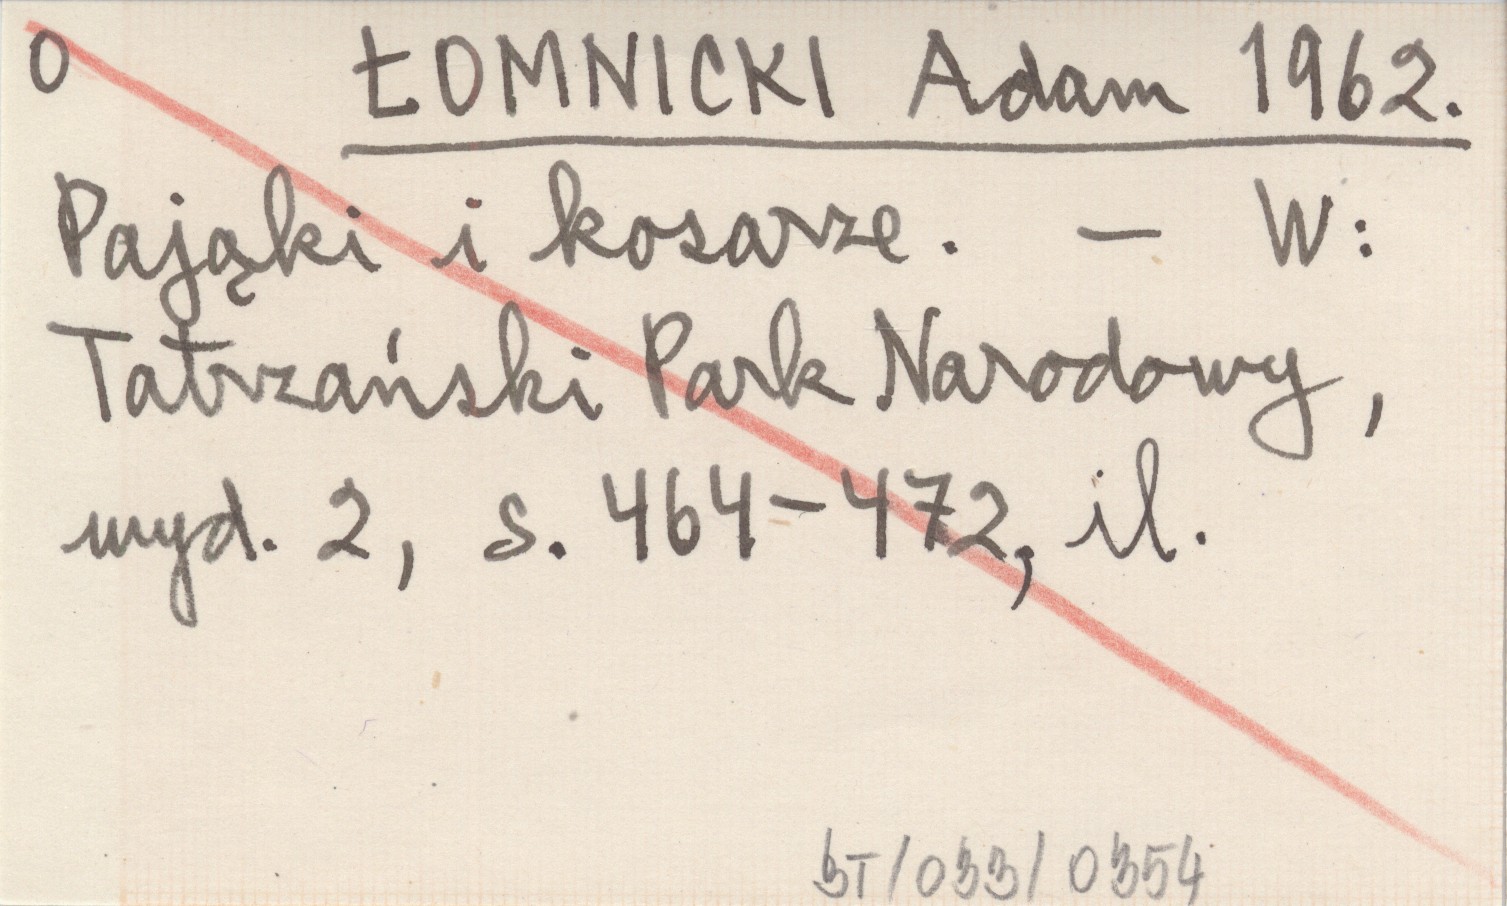 O ŁOMNICKI Adam 1962.
Pająki i kosarze. — W:
Tatrzański Park Narodowy,
wyd. 2, s. 464-472, il.
BT/033/0354